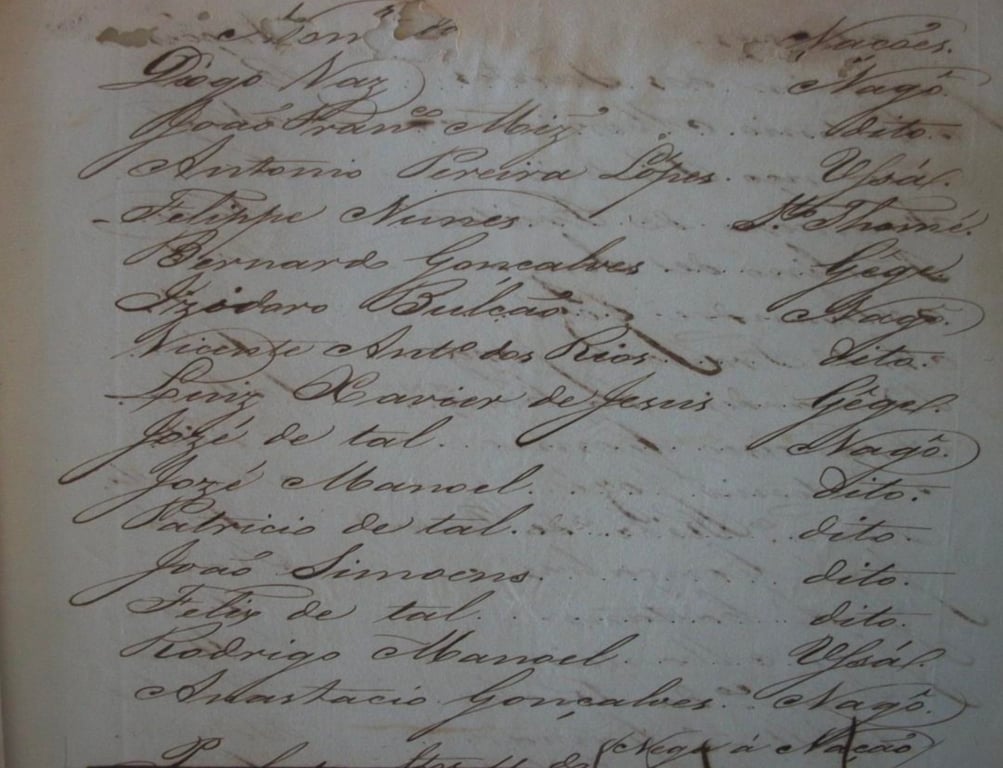 Nações.
Diogo Vaz Nagô
João Fran.co Miz dito.
Antonio Pereira Lopes. Ussá.
Felippe Nunes. S. Thomé.
Bernardo Gonçalves Gêge
Izidoro Bulcão Nagô.
Vicente Ant.o dos Rios. dito.
Luiz Xavier de Jesus Gêge.
Jozé de tal. Nagô.
Jozé Manoel. dito.
Patricio de tal. dito.
João Simoens. dito.
Felix de tal. dito.
Rodrigo Manoel Ussá.
Anastacio Gonçalves. Nagô.
á Nação